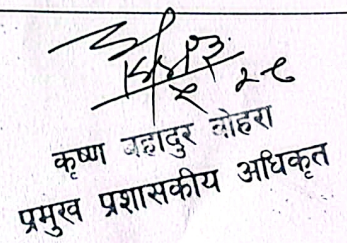 कृष्ण बहादुर बोहरा
प्रमुख प्रशासकीय अधिकृत